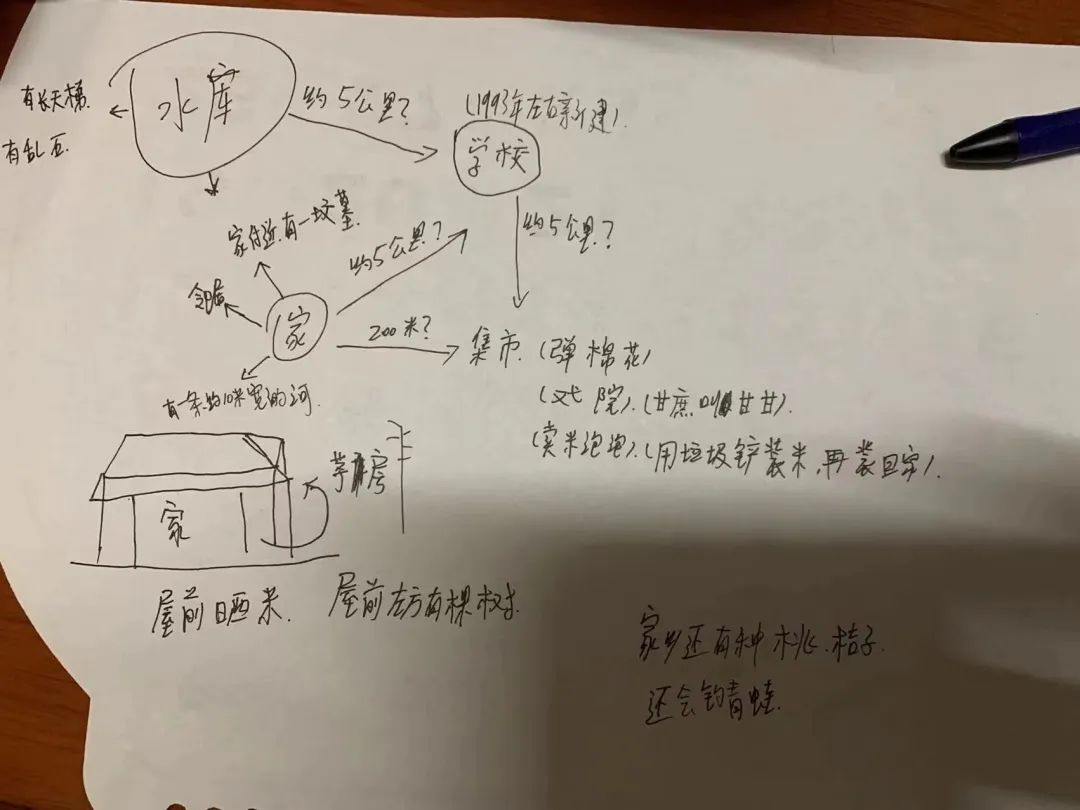 水库
有长天梯.
有乱石
约5公里?
(1993年左右新建).
学校
约5公里?
家附近有一坟墓.
约5公里.?
邻居
家
200米?
集市. (弹棉花)
(戏院). (甘蔗叫甘甘).
(卖米泡的). (用垃圾铲装米,再装回家).
有一条约10米宽的河.
家
茅房
屋前晒米.
屋前左方有棵树.
家乡还有种桃.桔子.
还会钓青蛙.